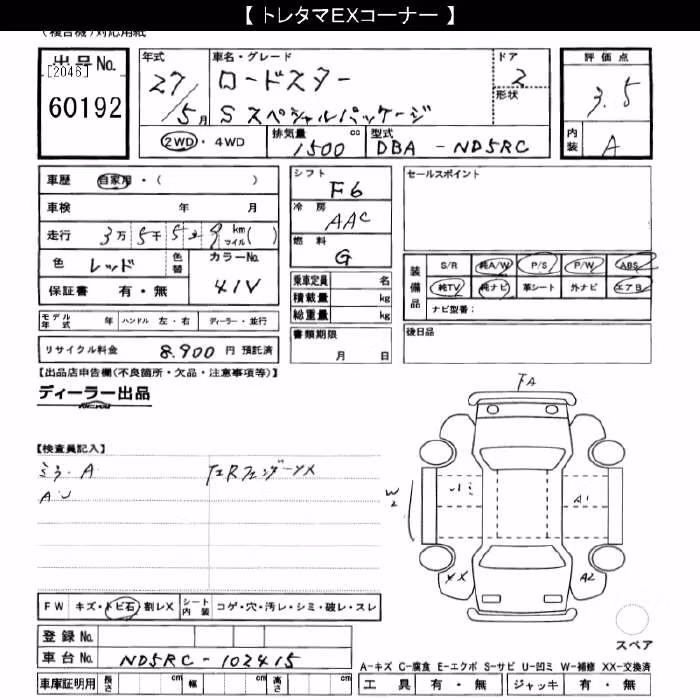 【 トレタマEXコーナー 】
(複合機)対応用紙
出品No.
[2046]
60192
年式
27/5月
車名・グレード
ロードスター
Sスペシャルパッケージ
ドア
2
形状
評価点
3.5
内装
A
2WD ・ 4WD
排気量 cc
1500
型式
DBA-ND5RC
車歴 自家用・( )
車検 年 月
走行 3万5千529 km マイル( )
色 レッド 色替
カラーNo.
41V
保証書 有・無
モデル年式 年 ハンドル 左・右 ディーラー・並行
リサイクル料金 8.900 円 預託済
シフト
F6
冷房
AAC
燃料
G
乗車定員 名
積載量 kg
総重量 kg
書類期限
月 日
セールスポイント
装備品
S/R 純A/W P/S P/W ABS
純TV 純ナビ 革シート 外ナビ エアB
ナビ型番:
後日品
【出品店申告欄(不良箇所・欠品・注意事項等)】
ディーラー出品
【検査員記入】
ミラーA
AU
左Rフェンダー〃X
FA
W2
A1
XX
A2
スペア
FW キズ・トビ石・割レX
シート内装 コゲ・穴・汚レ・シミ・破レ・スレ
登録No.
車台No. ND5RC-102415
車庫証明用 長さ cm 幅 cm 高さ cm
A-キズ C-腐食 E-エクボ S-サビ U-凹ミ W-補修 XX-交換済
工具 有・無 ジャッキ 有・無